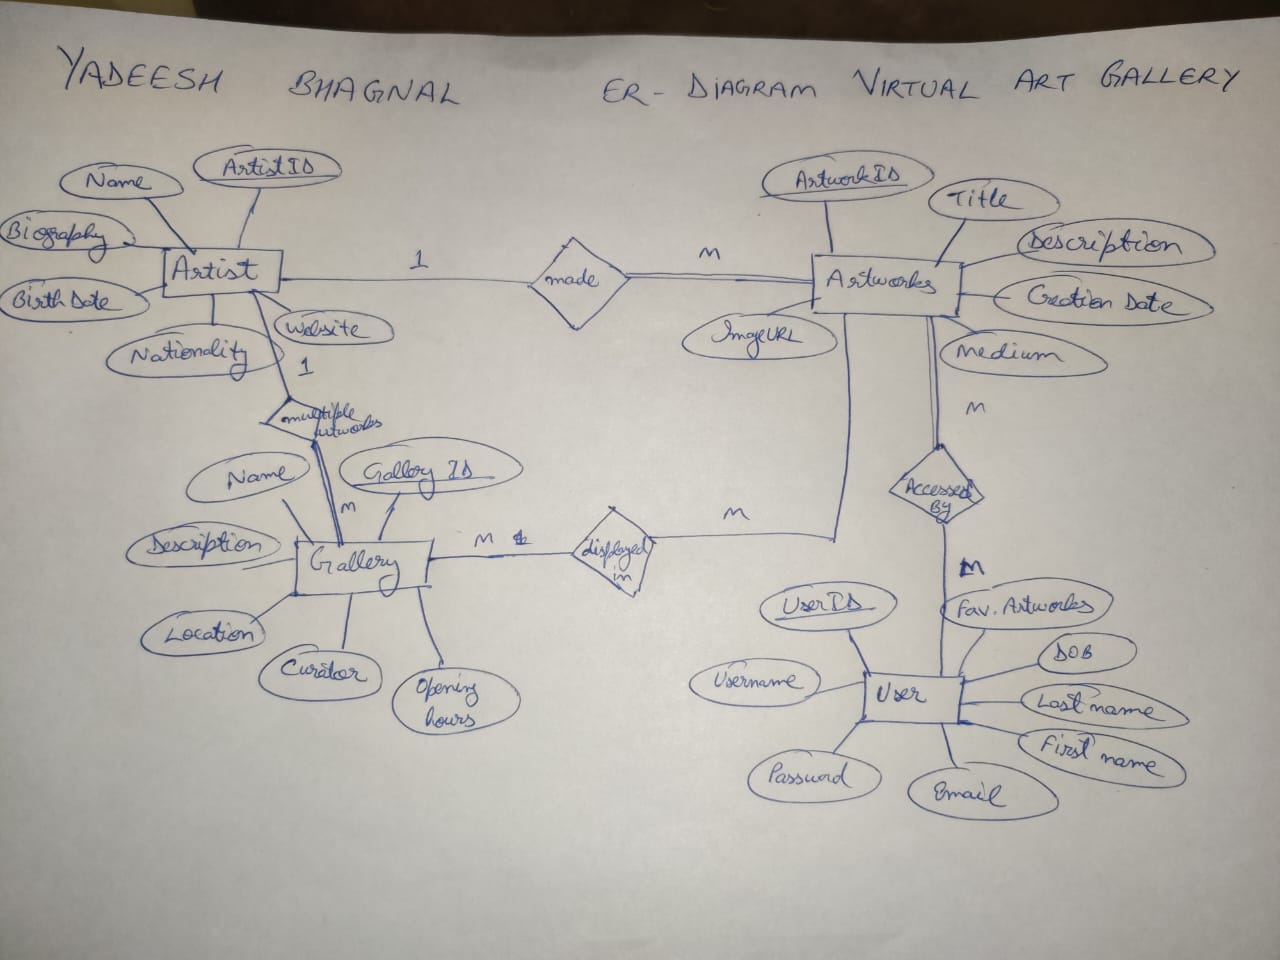 YADEESH BHAGNAL ER - DIAGRAM VIRTUAL ART GALLERY
Name
ArtistID
Biography
Artist
BirthDate
Nationality
Website
1
made
M
ArtworkID
Title
Description
Artworks
Creation Date
ImageURL
Medium
1
multiple
artworks
M
M
Accessed
By
M
Name
Gallery ID
Description
Gallery
M
displayed
in
M
Location
Curator
Opening
hours
UserID
Fav. Artworks
Username
User
DOB
Last name
First name
Password
Email